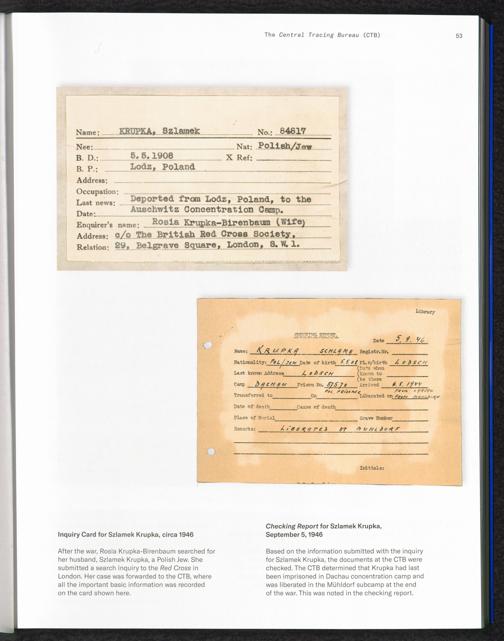 The Central Tracing Bureau (CTB)
53
Name: KRUPKA, Szlamek No.: 84817
Nee: Nat: Polish/Jew
B. D.: 5.5.1908 X Ref:
B. P.: Lodz, Poland
Address:
Occupation:
Last news: Deported from Lodz, Poland, to the
Date: Auschwitz Concentration Camp.
Enquirer's name: Rosia Krupka-Birenbaum (Wife)
Address: c/o The British Red Cross Society,
Relation: 29, Belgrave Square, London, S.W.1.
Library
Date 5.9.46
Name: KRUPKA SCHLAME Registr.Nr.
Nationality: POL/JEW Date of birth 5.5.08 Pl.o/birth LODSCH
Last known Address LODSCH
Camp DACHAU Prison No. arrived
Transferred to On Liberated on
Date of death Cause of death
Place of Burial Grave Number
Remarks: LIBERATED AT MUHLDORF
Initials:
Inquiry Card for Szlamek Krupka, circa 1946
After the war, Rosia Krupka-Birenbaum searched for
her husband, Szlamek Krupka, a Polish Jew. She
submitted a search inquiry to the Red Cross in
London. Her case was forwarded to the CTB, where
all the important basic information was recorded
on the card shown here.
Checking Report for Szlamek Krupka,
September 5, 1946
Based on the information submitted with the inquiry
for Szlamek Krupka, the documents at the CTB were
checked. The CTB determined that Krupka had last
been imprisoned in Dachau concentration camp and
was liberated in the Mühldorf subcamp at the end
of the war. This was noted in the checking report.